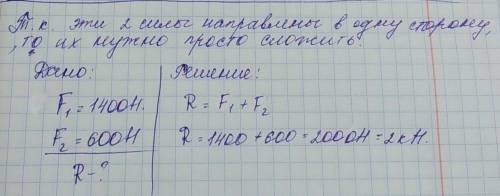 Т.к. эти 2 силы направлены в одну сторону,
то их нужно просто сложить.
Дано:
F₁ = 1400Н.
F₂ = 600Н
R - ?
Решение:
R = F₁ + F₂
R = 1400 + 600 = 2000Н = 2кН.